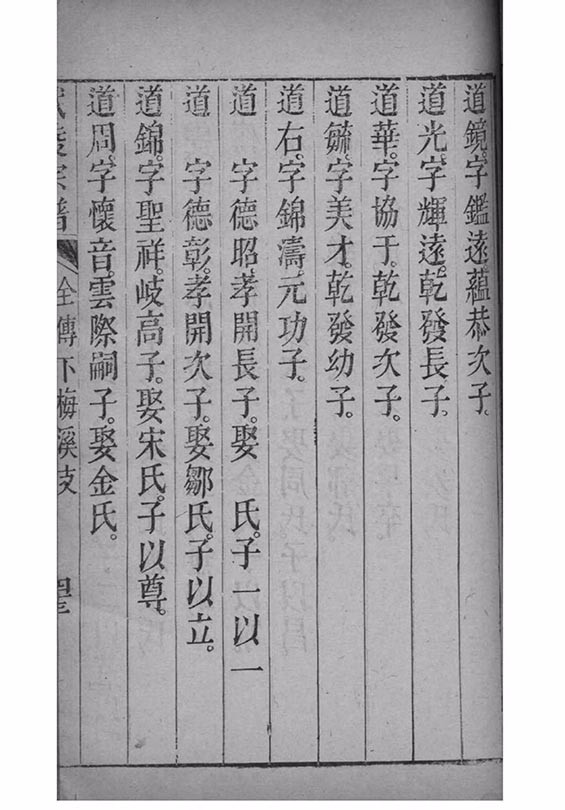 道鏡。字鑑遠。蘊恭次子。
道光。字輝遠。乾發長子。
道華。字協于。乾發次子。
道毓。字美才。乾發幼子。
道右。字錦濤。元功子。
道　字德昭。孝開長子。娶　氏。子一以一
道　字德彰。孝開次子。娶鄒氏。子以立。
道錦。字聖祥。岐高子。娶宋氏。子以尊。
道周。字懷音。雲際嗣子。娶金氏。
宗譜　全傳下梅溪支